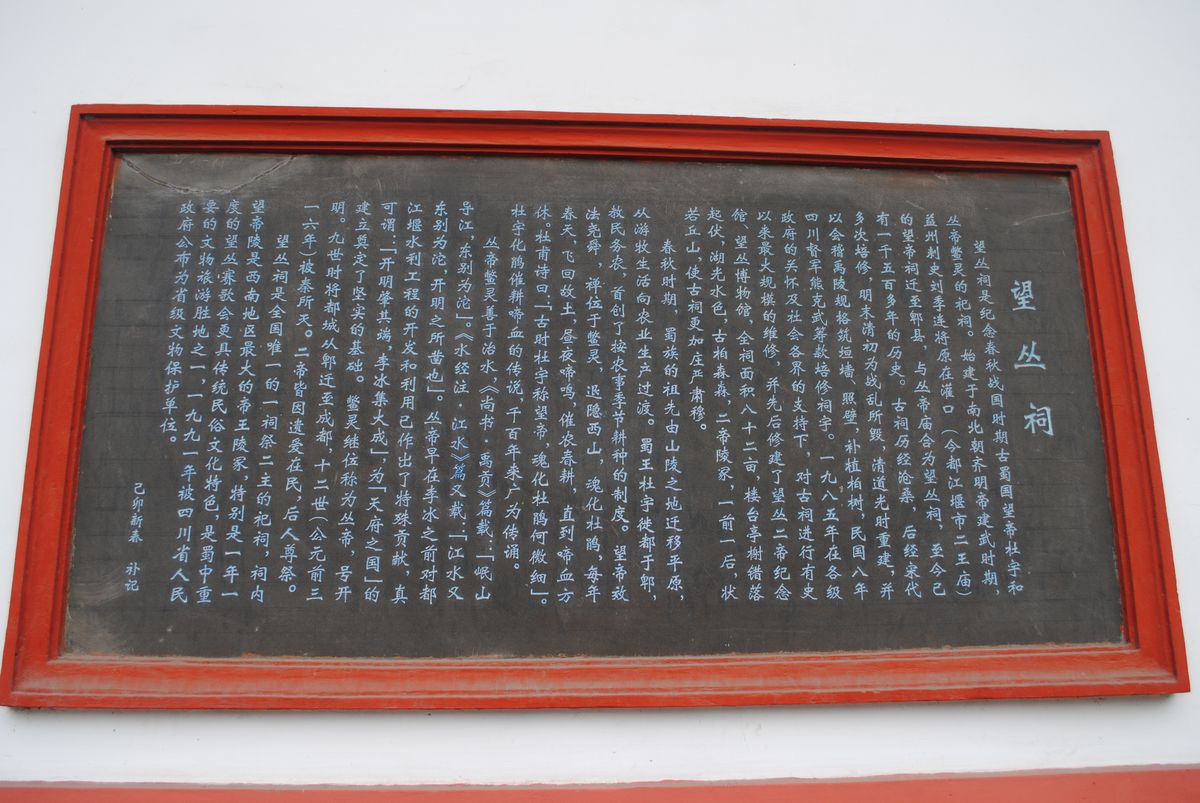 望丛祠
望丛祠是纪念春秋战国时期古蜀国望帝杜宇和
丛帝鳖灵的祀祠。始建于南北朝齐明帝建武时期，
益州刺史刘季连将原在灌口（今都江堰市二王庙）
的望帝祠迁至郫县，与丛帝庙合为望丛祠，至今已
有一千五百多年的历史。古祠历经沧桑，后经宋代
多次培修，明末清初为战乱所毁，清道光时重建，并
以会稽禹陵规格筑垣墙、照壁，补植柏树，民国八年
四川督军熊克武筹款培修祠宇。一九八五年在各级
政府的关怀及社会各界的支持下，对古祠进行有史
以来最大规模的维修，并先后修建了望丛二帝纪念
馆、望丛博物馆，全祠面积八十二亩，楼台亭榭错落
起伏，湖光水色，古柏森森，二帝陵冢，一前一后，状
若丘山，使古祠更加庄严肃穆。
春秋时期，蜀族的祖先由山陵之地迁移平原，
从游牧生活向农业生产过渡。蜀王杜宇徙都于郫，
教民务农，首创了按农事季节耕种的制度。望帝效
法尧舜，禅位于鳖灵，退隐西山，魂化杜鹃，每年
春天，飞回故土，昼夜啼鸣，催农春耕，直到啼血方
休。杜甫诗曰：「古时杜宇称望帝，魂化杜鹃何微细」。
杜宇化鹃催耕啼血的传说，千百年来广为传诵。
丛帝鳖灵善于治水，《尚书·禹贡》篇载：「岷山
导江，东别为沱」。《水经注·江水》篇又载：「江水又
东别为沱，开明之所凿也」。丛帝早在李冰之前对都
江堰水利工程的开发和利用已作出了特殊贡献，真
可谓：「开明肇其端，李冰集大成」，为「天府之国」的
建立奠定了坚实的基础。鳖灵继位称为丛帝，号开
明。九世时将都城从郫迁至成都，十二世（公元前三
一六年）被秦所灭。二帝皆因遗爱在民，后人尊祭。
望丛祠是全国唯一的一祠祭二主的祀祠，祠内
望帝陵是西南地区最大的帝王陵冢，特别是一年一
度的望丛赛歌会更具传统民俗文化特色，是蜀中重
要的文物旅游胜地之一，一九九一年被四川省人民
政府公布为省级文物保护单位。
己卯新春 补记